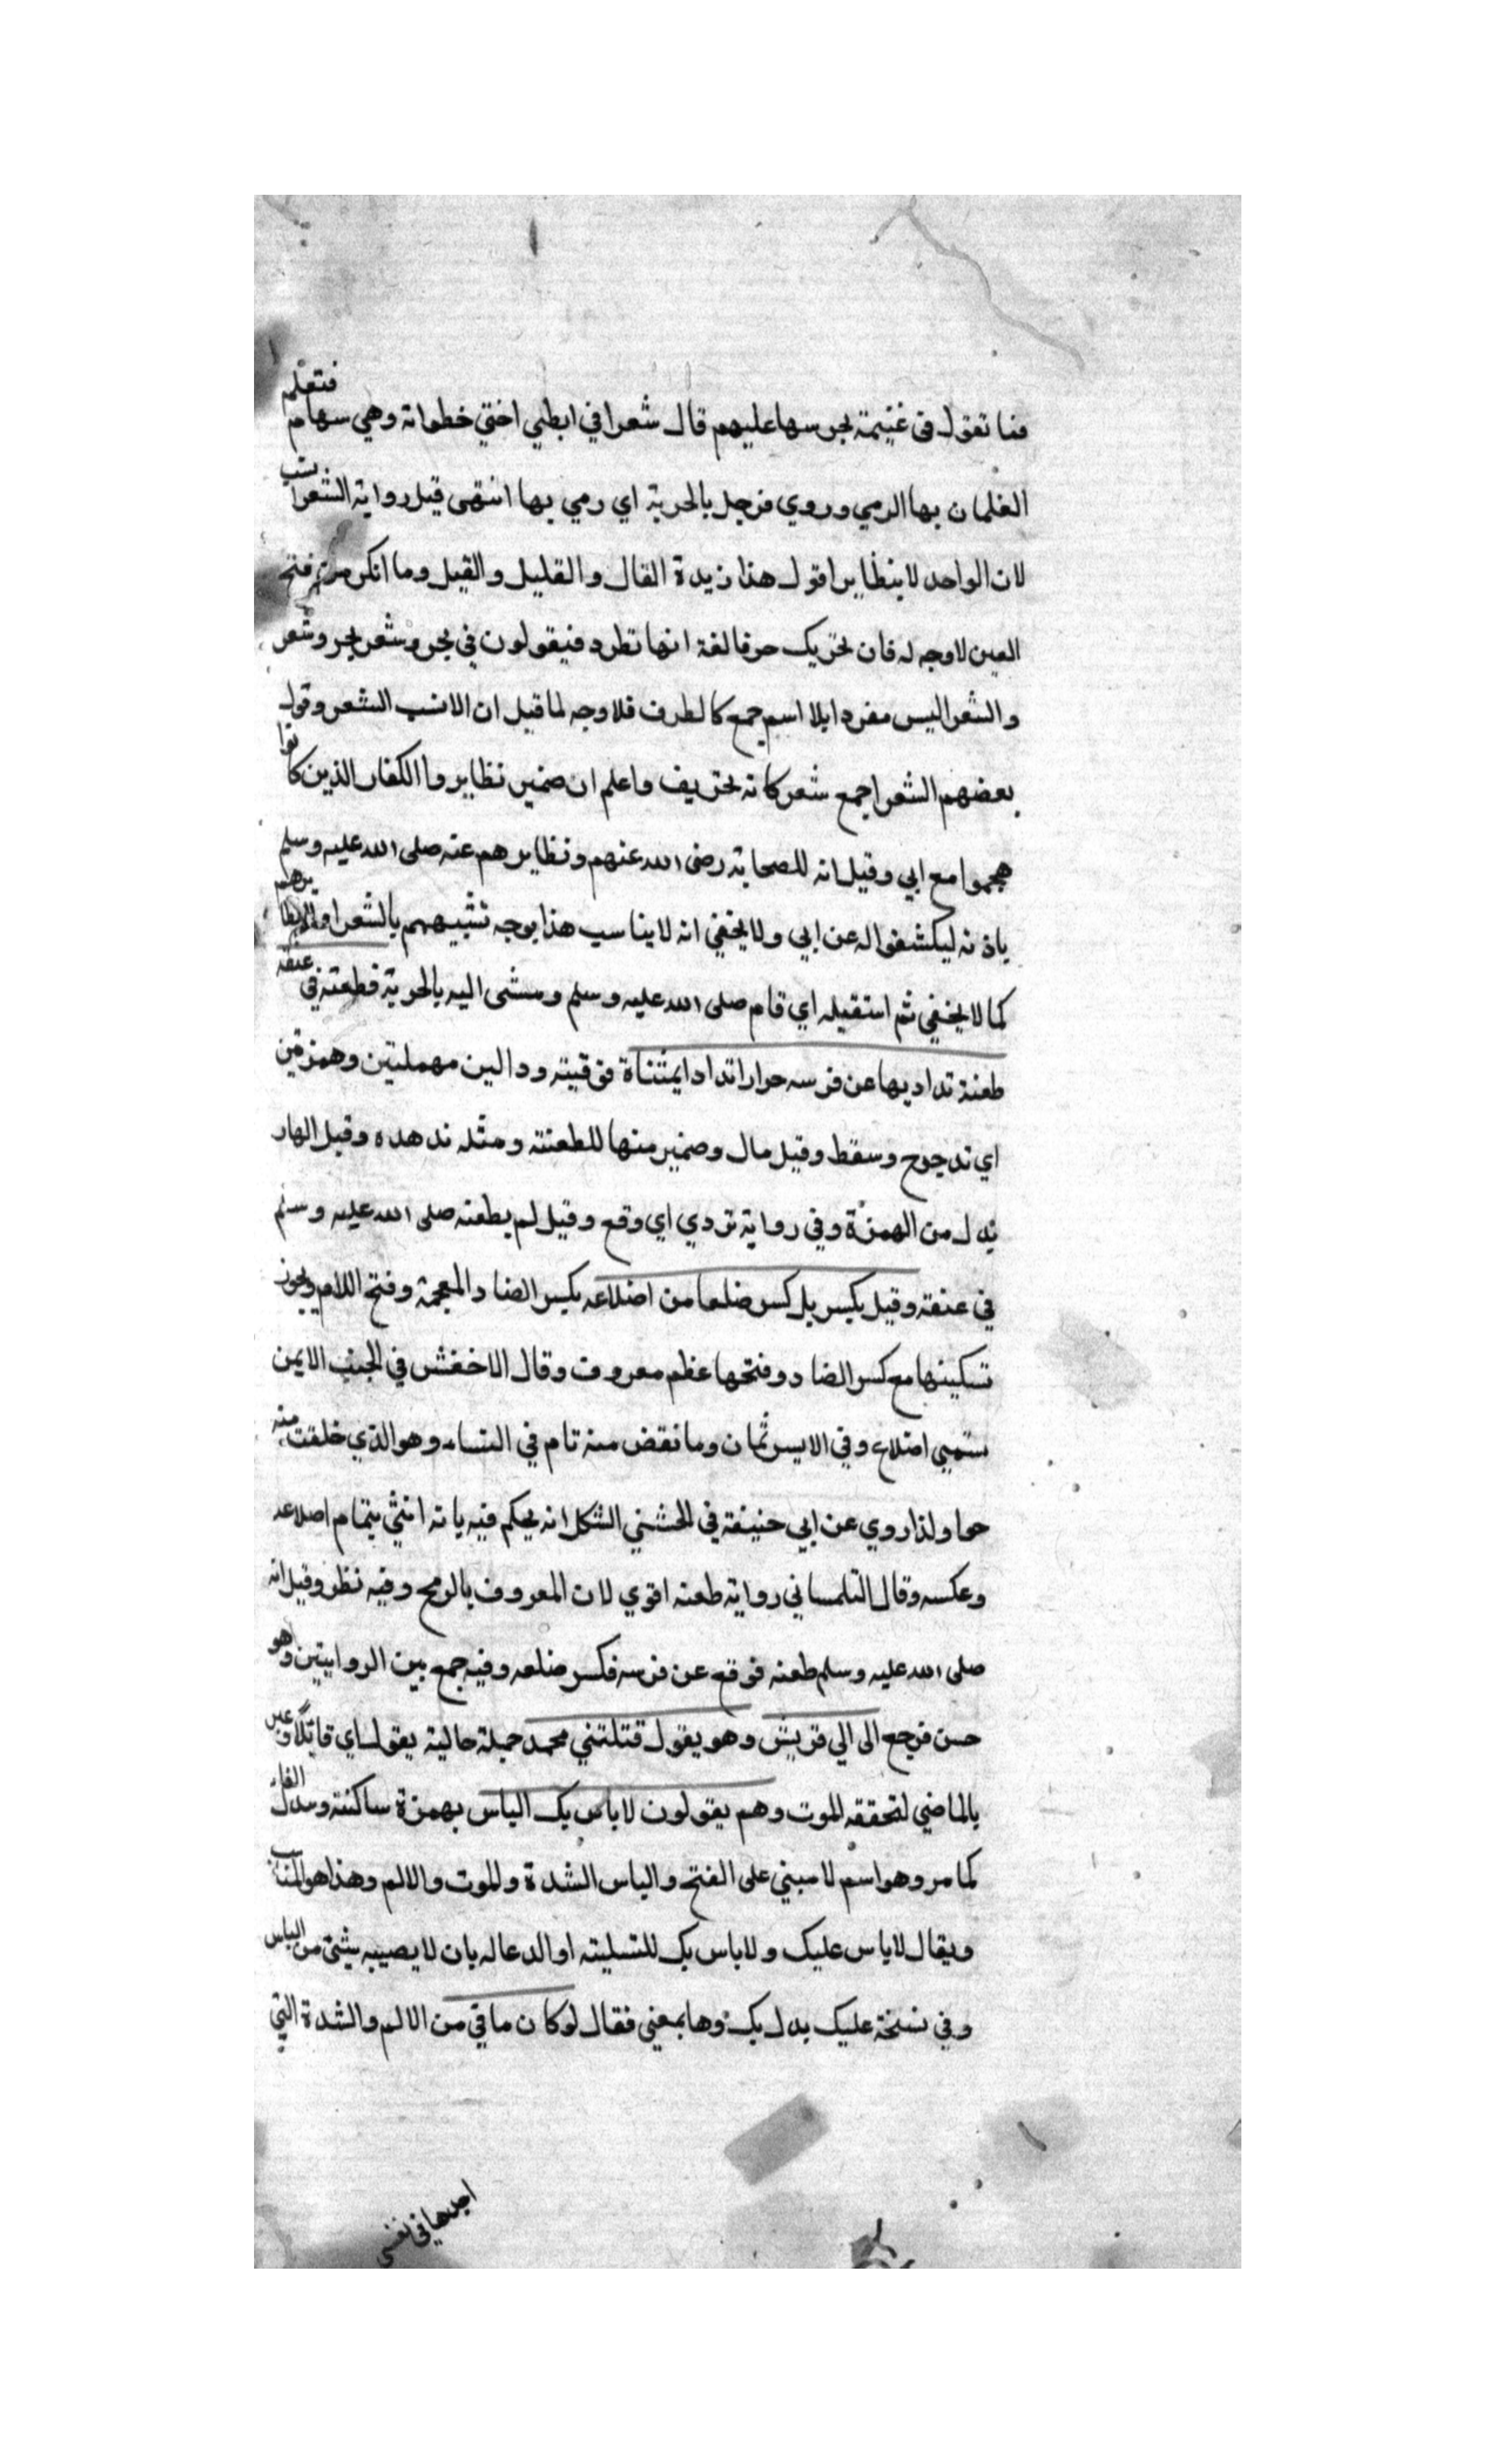 فما تقول في غنيمة يجرسها عليهم قال شعرا في ابطيي اختي خطواتة وهي سهام فتعلم
الغلمان بها الرمي وروي فزجل بالحربة اي رمي بها انتهى قيل رواية الشعرا
لان الواحد لا ينظاير اقول هذا زبدة القال والقليل والقيل وما انكر من فتح
العين لا وجه له فان تحريك حرفا لغة انها تطرد فيقولون في بحر وشعر بحر وشعر
والشعر اليس مفردا بلا اسم جمع كالطرف فلا وجه لما قيل ان الانسب الشعر وقول
بعضهم الشعرا جمع شعر كانه تحريف واعلم ان ضمير نظايروا الكفار الذين كانوا
هجموا مع ابي وقيل انه للصحابة رضى الله عنهم ونظايرهم عنه صلى الله عليه وسلم
باذنه ليكشفوا له عن ابي ولا يخفي انه لا يناسب هذا بوجه تشبيههم بالشعرا
كما لا يخفي ثم استقبله اي قام صلى الله عليه وسلم ومشى اليه بالحربة فطعنه في عنقه
طعنة تداديها عن فرسه حوارا تدادا بمثناة فوقيته ودالين مهملتين وهمزتين
اي تدجرح وسقط وقيل مال وضمير منها للطعنته ومثله ندهده وقيل الهار
بدل من الهمزة وفي رواية تردي اي وقع وقيل لم يطعنه صلى الله عليه وسلم
في عنقه وقيل بكسر بل كسر ضلعا من اضلاعه بكسر الضاد المعجمة وفتح اللام ويجوز
تسكينها مع كسر الضاد وفتحها عظم معروف وقال الاخفش في الجنب الايمن
ستمبي اضلاع وفي الايسر ثمان وما نقض منه تام في النساء وهو الذي خلقت منه
حوا ولذا روي عن ابي حنيفة في الخشني الشكل انه يحكم فيه بانه انثي بتمام اضلاعه
وعكسه وقال التلمساني رواية طعنه اقوي لان المعروف بالرمح وفيه نظر وقيل انه
صلى الله عليه وسلم طعنه فوقع عن فرسه فكسر ضلعه وفيه جمع بين الروايتين وهو
حسن فرجع الى الي قريش وهو يقول قتلتني محمد جملة حالية يقول اي قاتلا وعبر
بالماضي لتحققه الموت وهم يقولون لا باس بك الباس بهمزة ساكنته وتبدل الفا
كما مر وهو اسم لا مبني على الفتح والباس الشدة والموت والالم وهذا هو المناسب
ويقال لا باس عليك ولا باس بك للتسليته او الدعا له بان لا يصيبه شئ من الباس
وفي نسخة عليك بدل بك وهما بمعني فقال لو كان ما في من الالم والشدة التي
اجدها في نفسي